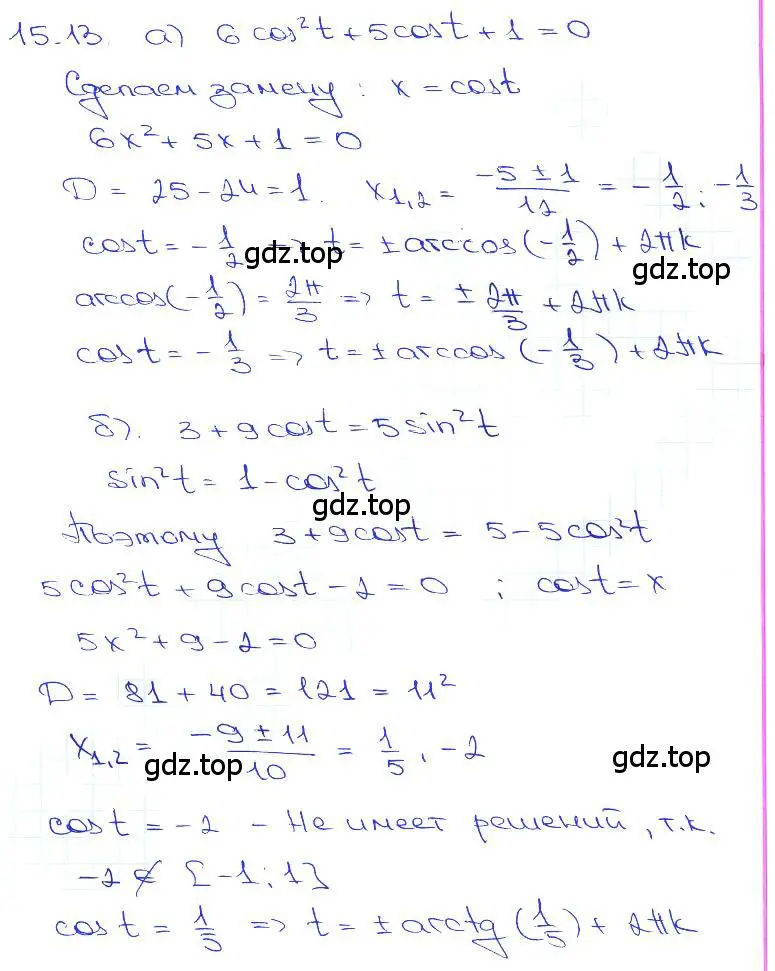 15.13. а) 6 cos²t + 5cost + 1 = 0
Сделаем замену: x = cost
6x² + 5x + 1 = 0
D = 25 - 24 = 1. x₁,₂ = (-5 ± 1)/12 = -1/2; -1/3
cost = -1/2 => t = ± arccos(-1/2) + 2πk
gdz.top
gdz.top
arccos(-1/2) = 2π/3 => t = ± 2π/3 + 2πk
cost = -1/3 => t = ± arccos(-1/3) + 2πk
б). 3 + 9cost = 5sin²t
sin²t = 1 - cos²t
gdz.top
Поэтому 3 + 9cost = 5 - 5cos²t
5cos²t + 9cost - 2 = 0 ; cost = x
5x² + 9 - 2 = 0
D = 81 + 40 = 121 = 11²
x₁,₂ = (-9 ± 11)/10 = 1/5, -2
gdz.top
gdz.top
cost = -2 - Не имеет решений, т.к.
-2 ∉ [-1; 1]
cost = 1/5 => t = ± arctg(1/5) + 2πk